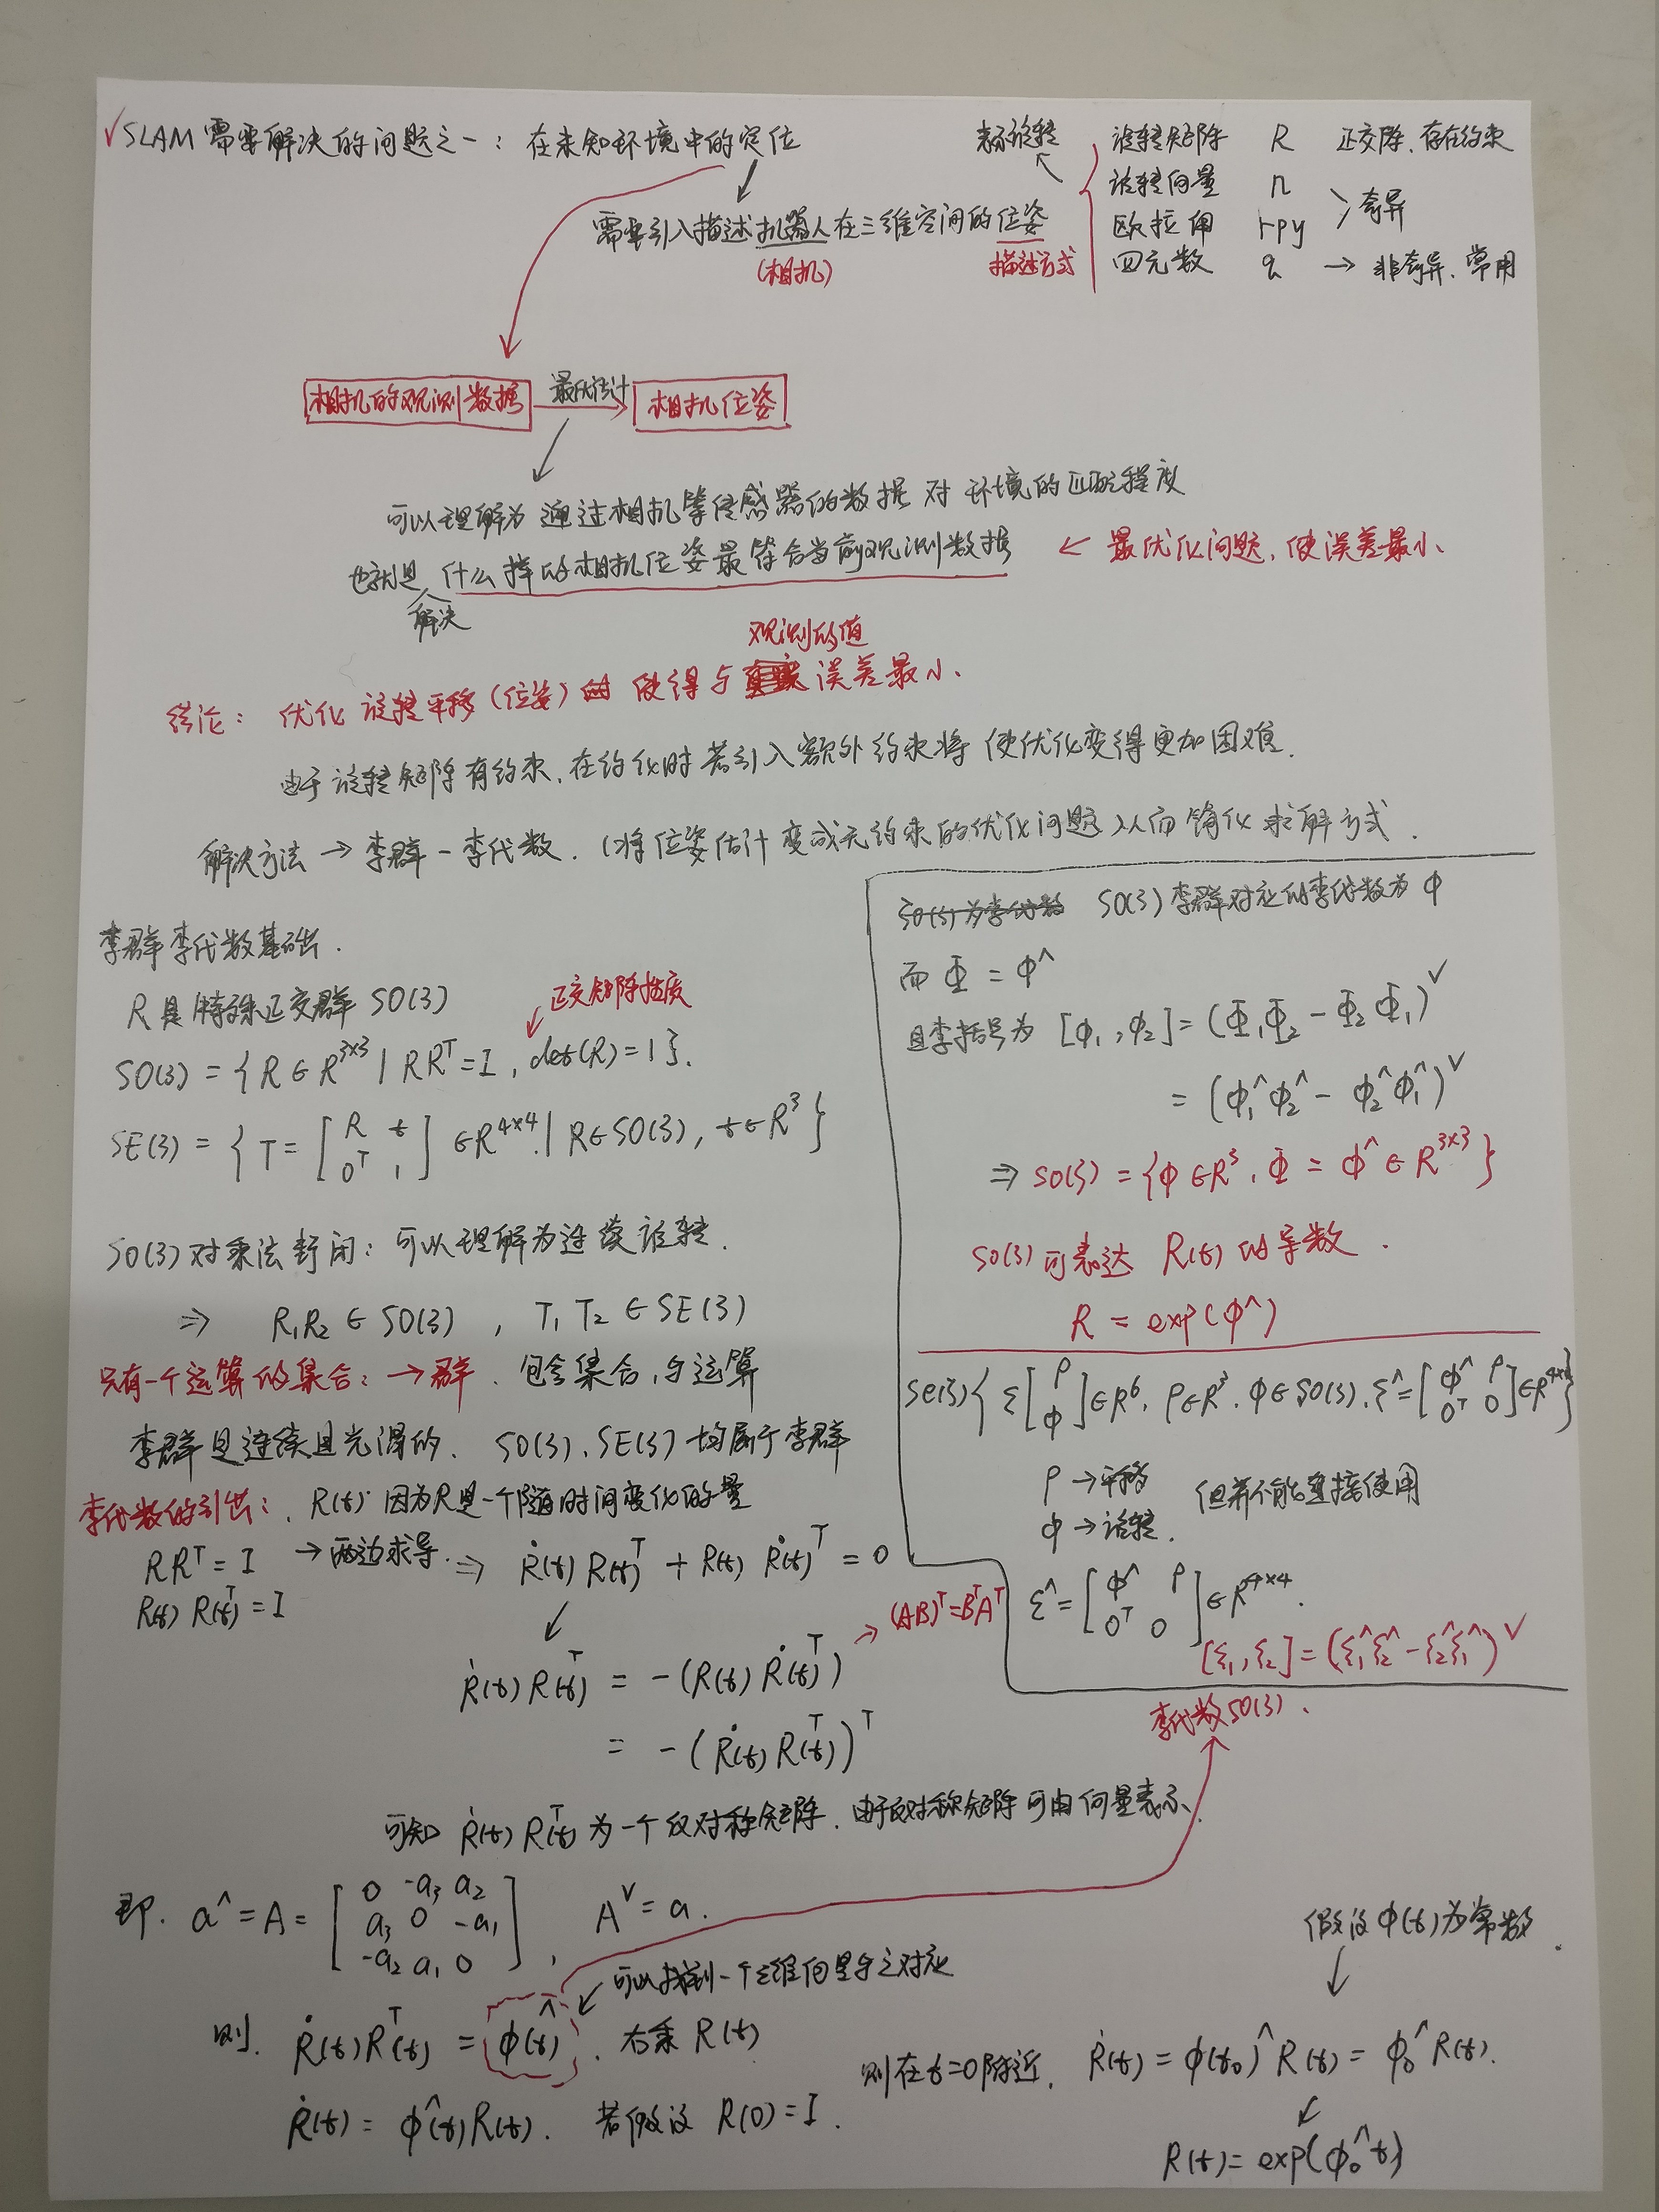 √SLAM需要解决的问题之一：在未知环境中的定位
需要引入描述机器人在三维空间的位姿
(相机)
描述方式
表示旋转
旋转矩阵 R 正交阵，存在约束
旋转向量 n
欧拉角 rpy
>奇异
四元数 q → 非奇异，常用
相机的观测数据 最优估计 → 相机位姿
可以理解为通过相机等传感器的数据对环境的匹配程度
也就是解决什么样的相机位姿最符合当前观测数据 ← 最优化问题，使误差最小.
结论：优化旋转平移(位姿) 使得与观测的值误差最小.
由于旋转矩阵有约束，在约化时若引入额外约束将使优化变得更加困难.
解决方法 → 李群-李代数. (将位姿估计变成无约束的优化问题)从而简化求解方式.
李群李代数基础.
R是特殊正交群 SO(3)
正交矩阵性质
SO(3) = {R∈R^{3×3} | RR^T=I, det(R)=1}.
SE(3) = {T=[R t; 0^T 1]∈R^{4×4} | R∈SO(3), t∈R^3}
SO(3)对乘法封闭：可以理解为连续旋转.
⇒ R₁R₂∈SO(3), T₁T₂∈SE(3)
只有一个运算的集合：→群. 包含集合,与运算
李群是连续且光滑的. SO(3), SE(3)均属于李群
李代数的引出：. R(t) 因为R是一个随时间变化的量
RR^T=I → 两边求导. ⇒ Ṙ(t)R(t)^T + R(t)Ṙ(t)^T = 0
R(t)R(t)^T=I
Ṙ(t)R(t)^T = -(R(t)Ṙ(t)^T) → (AB)^T=B^TA^T
= -(Ṙ(t)R(t)^T)^T
可知 Ṙ(t)R(t)^T 为一个反对称矩阵. 由于反对称矩阵可由向量表示.
即. a^=A=[0 -a₃ a₂; a₃ 0 -a₁; -a₂ a₁ 0], A^∨=a.
可以找到一个三维向量与之对应
则. Ṙ(t)R(t)^T = φ(t)^. 右乘R(t)
Ṙ(t) = φ^(t)R(t). 若假设 R(0)=I.
假设φ(t)为常数.
则在t=0附近. Ṙ(t) = φ(t₀)^R(t) = φ₀^R(t).
R(t)=exp(φ₀^t)
SO(3)为李代数 SO(3)李群对应的李代数为φ
而 Φ = φ^
且李括号为 [φ₁,φ₂] = (Φ₁Φ₂ - Φ₂Φ₁)^∨
= (φ₁^φ₂^ - φ₂^φ₁^)^∨
⇒ so(3) = {φ∈R^3, Φ = φ^∈R^{3×3}}
so(3)可表达 R(t)的导数.
R = exp(φ^)
se(3){ξ[ρ; φ]∈R^6, ρ∈R^3, φ∈so(3), ξ^=[φ^ ρ; 0^T 0]∈R^{4×4}}
ρ → 平移
φ → 旋转.
但并不能直接使用
ξ^=[φ^ ρ; 0^T 0]∈R^{4×4}.
[ξ₁,ξ₂]=(ξ₁^ξ₂^-ξ₂^ξ₁^)^∨
李代数so(3).